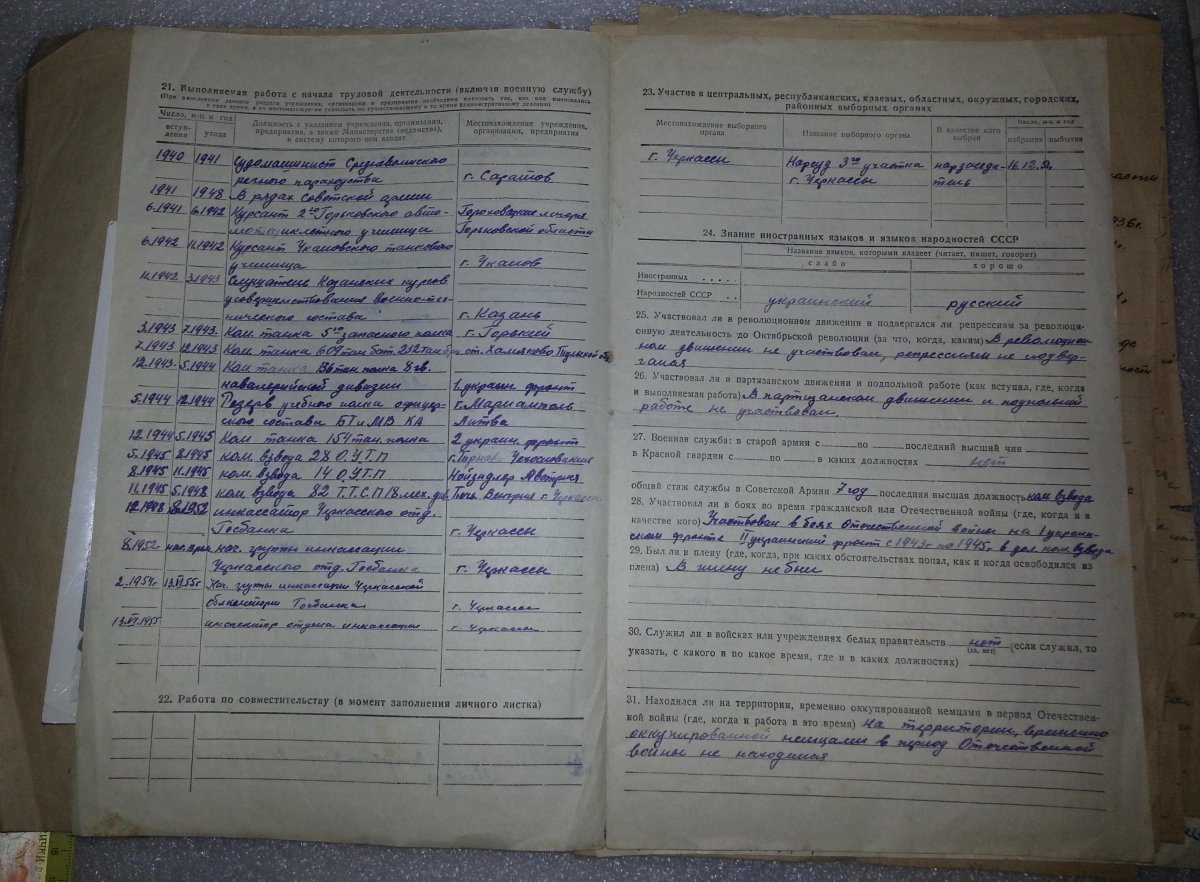 21. Выполняемая работа с начала трудовой деятельности (включая военную службу)
(При заполнении данного раздела учреждения, организации и предприятия необходимо именовать так, как они именовались
в свое время, а их местонахождение указывать по существовавшему в то время административному делению)
Число, м-ц и год
вступ-
ления
ухода
Должность с указанием учреждения, организации,
предприятия, а также Министерства (ведомства),
в систему которого они входят
Местонахождение учреждения,
организации, предприятия
1940 1941 Судомашинист Средневолжского
речного пароходства г. Саратов
1941 1948 В рядах Советской армии
6.1941 6.1942 Курсант 2го Горьковского авто- Гороховецкие лагеря
мотоциклетного училища Горьковской области
6.1942 11.1942 Курсант Чкаловского танкового
училища г. Чкалов
11.1942 3.1943 Слушатель Казанских курсов
усовершенствования военно-тех-
нического состава г. Казань
3.1943 7.1943 Ком танка 5го запасного полка г. Горький
7.1943 12.1943 Ком танка 609 тан. бат. 232 тан. бри. ст. Хомяково Тульской об.
12.1943 5.1944 Ком танка 136 тан. полка 8 гв.
кавалерийской дивизии 1 украин. фронт
5.1944 12.1944 Резерв учебного полка офицер- г. Мариамполь
ского состава БТ и МВ КА Литва
12.1944 5.1945 Ком танка 154 тан. полка 2 украин. фронт
5.1945 8.1945 ком. взвода 28 О.У.Т.П Чехословакия
8.1945 11.1945 ком. взвода 14 О.У.Т.П Нойзидлер Австрия
11.1945 5.1948 ком. взвода 82 Т.Т.С.П 18 мех. див. Венгрия г. Черкассы
12.1948 8.1952 инкассатор Черкасского отд.
Госбанка г. Черкассы
8.1952 нач. группы инкассации
Черкасского отд. Госбанка г. Черкассы
2.1954г 13.VI.55г Нач. группы инкассации Черкасской
облконторы Госбанка г. Черкассы
13.VI.1955 инспектор отдела инкассации г. Черкассы
22. Работа по совместительству (в момент заполнения личного листка)
23. Участие в центральных, республиканских, краевых, областных, окружных, городских,
районных выборных органах
Местонахождение выборного
органа
Название выборного органа
В качестве кого
выбран
Число, м-ц и год
избрания
выбытия
г. Черкассы Нарсуд 3го участка нарзаседа- 16.12.51.
г. Черкассы тель
24. Знание иностранных языков и языков народностей СССР
Название языков, которыми владеет (читает, пишет, говорит)
слабо хорошо
Иностранных . . . .
Народностей СССР . . украинский русский
25. Участвовал ли в революционном движении и подвергался ли репрессиям за революци-
онную деятельность до Октябрьской революции (за что, когда, каким) В революцион-
ном движении не участвовал, репрессиям не подвер-
гался
26. Участвовал ли в партизанском движении и подпольной работе (как вступил, где, когда
и выполняемая работа) В партизанском движении и подпольной
работе не участвовал.
27. Военная служба: в старой армии с по последний высший чин
в Красной гвардии с по в каких должностях нет
общий стаж службы в Советской Армии 7 год последняя высшая должность ком взвода
28. Участвовал ли в боях во время гражданской или Отечественной войны (где, когда и в
качестве кого) Участвовал в боях Отечественной войны на I украин-
ском фронте II украинский фронт с 1943г по 1945г. в дол ком. взвода
29. Был ли в плену (где, когда, при каких обстоятельствах попал, как и когда освободился из
плена) В плену не был
30. Служил ли в войсках или учреждениях белых правительств нет (если служил, то
(да, нет)
указать, с какого и по какое время, где и в каких должностях)
31. Находился ли на территории, временно оккупированной немцами в период Отечествен-
ной войны (где, когда и работа в это время) На территории, временно
оккупированной немцами в период Отечественной
войны не находился